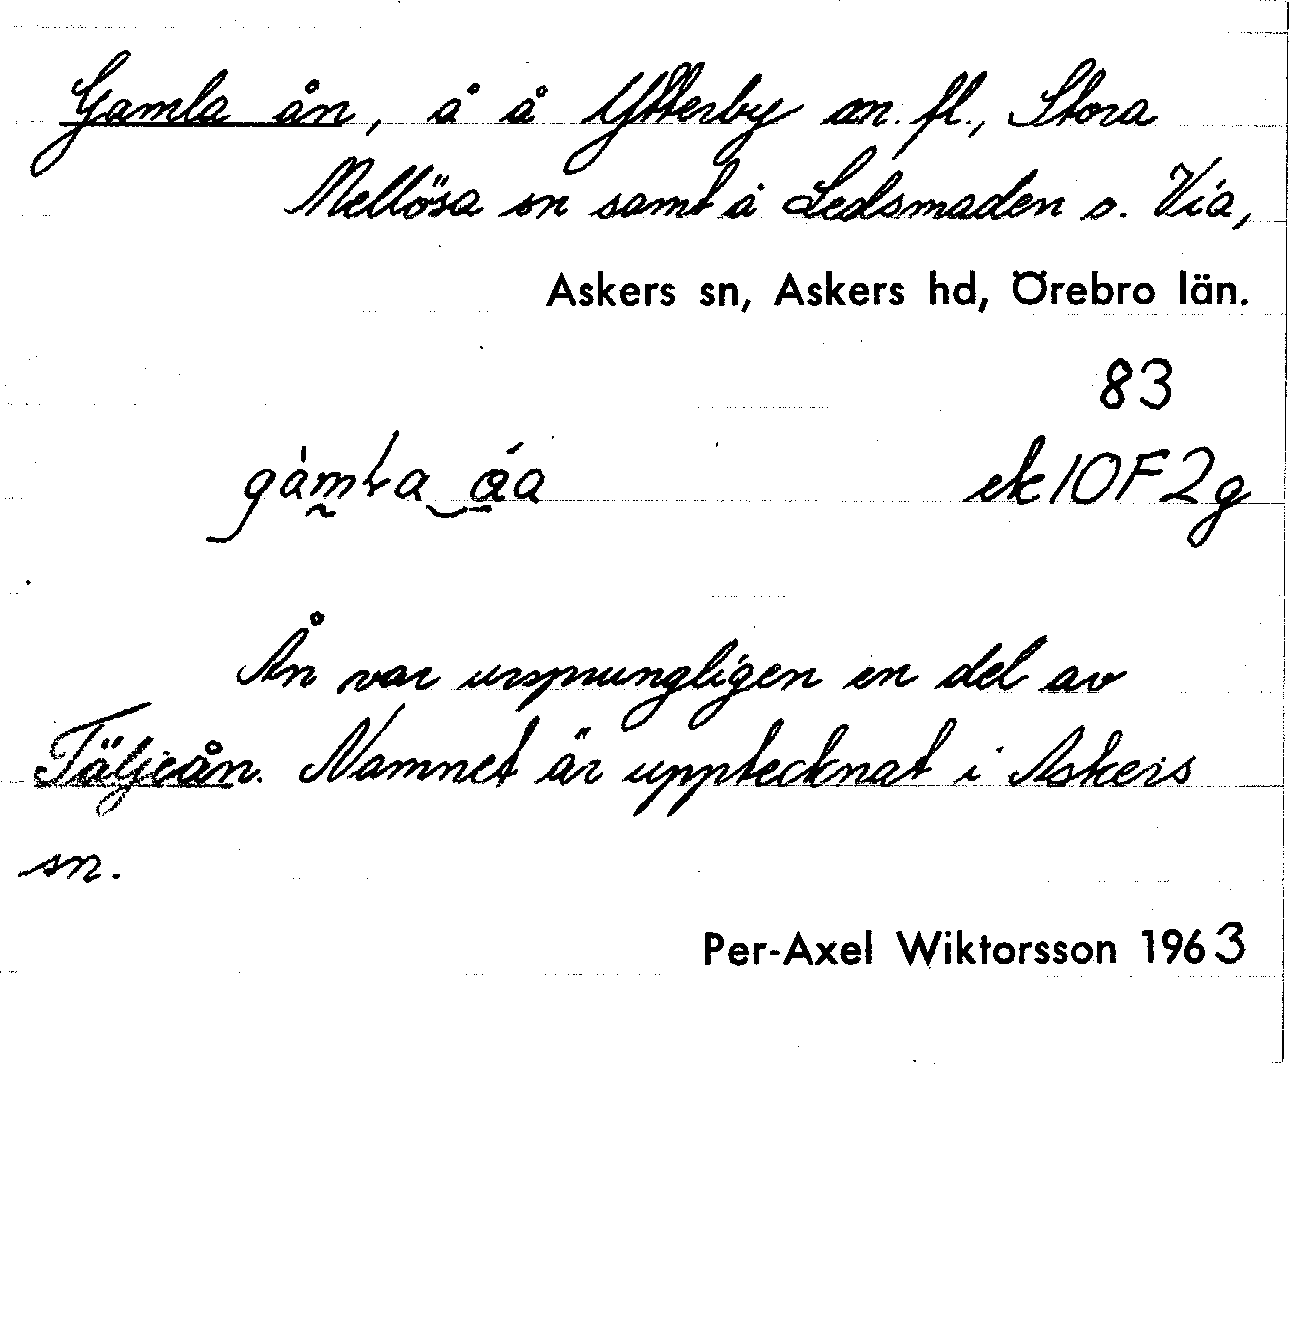 Gamla ån, å å Ytterby m. fl., Stora
Mellösa sn samt å Ledsmaden o. Via,
Askers sn, Askers hd, Örebro län.
83
ek 10F2g
Ån var ursprungligen en del av
Täljeån. Namnet är upptecknat i Askers
sn.
Per-Axel Wiktorsson 1963